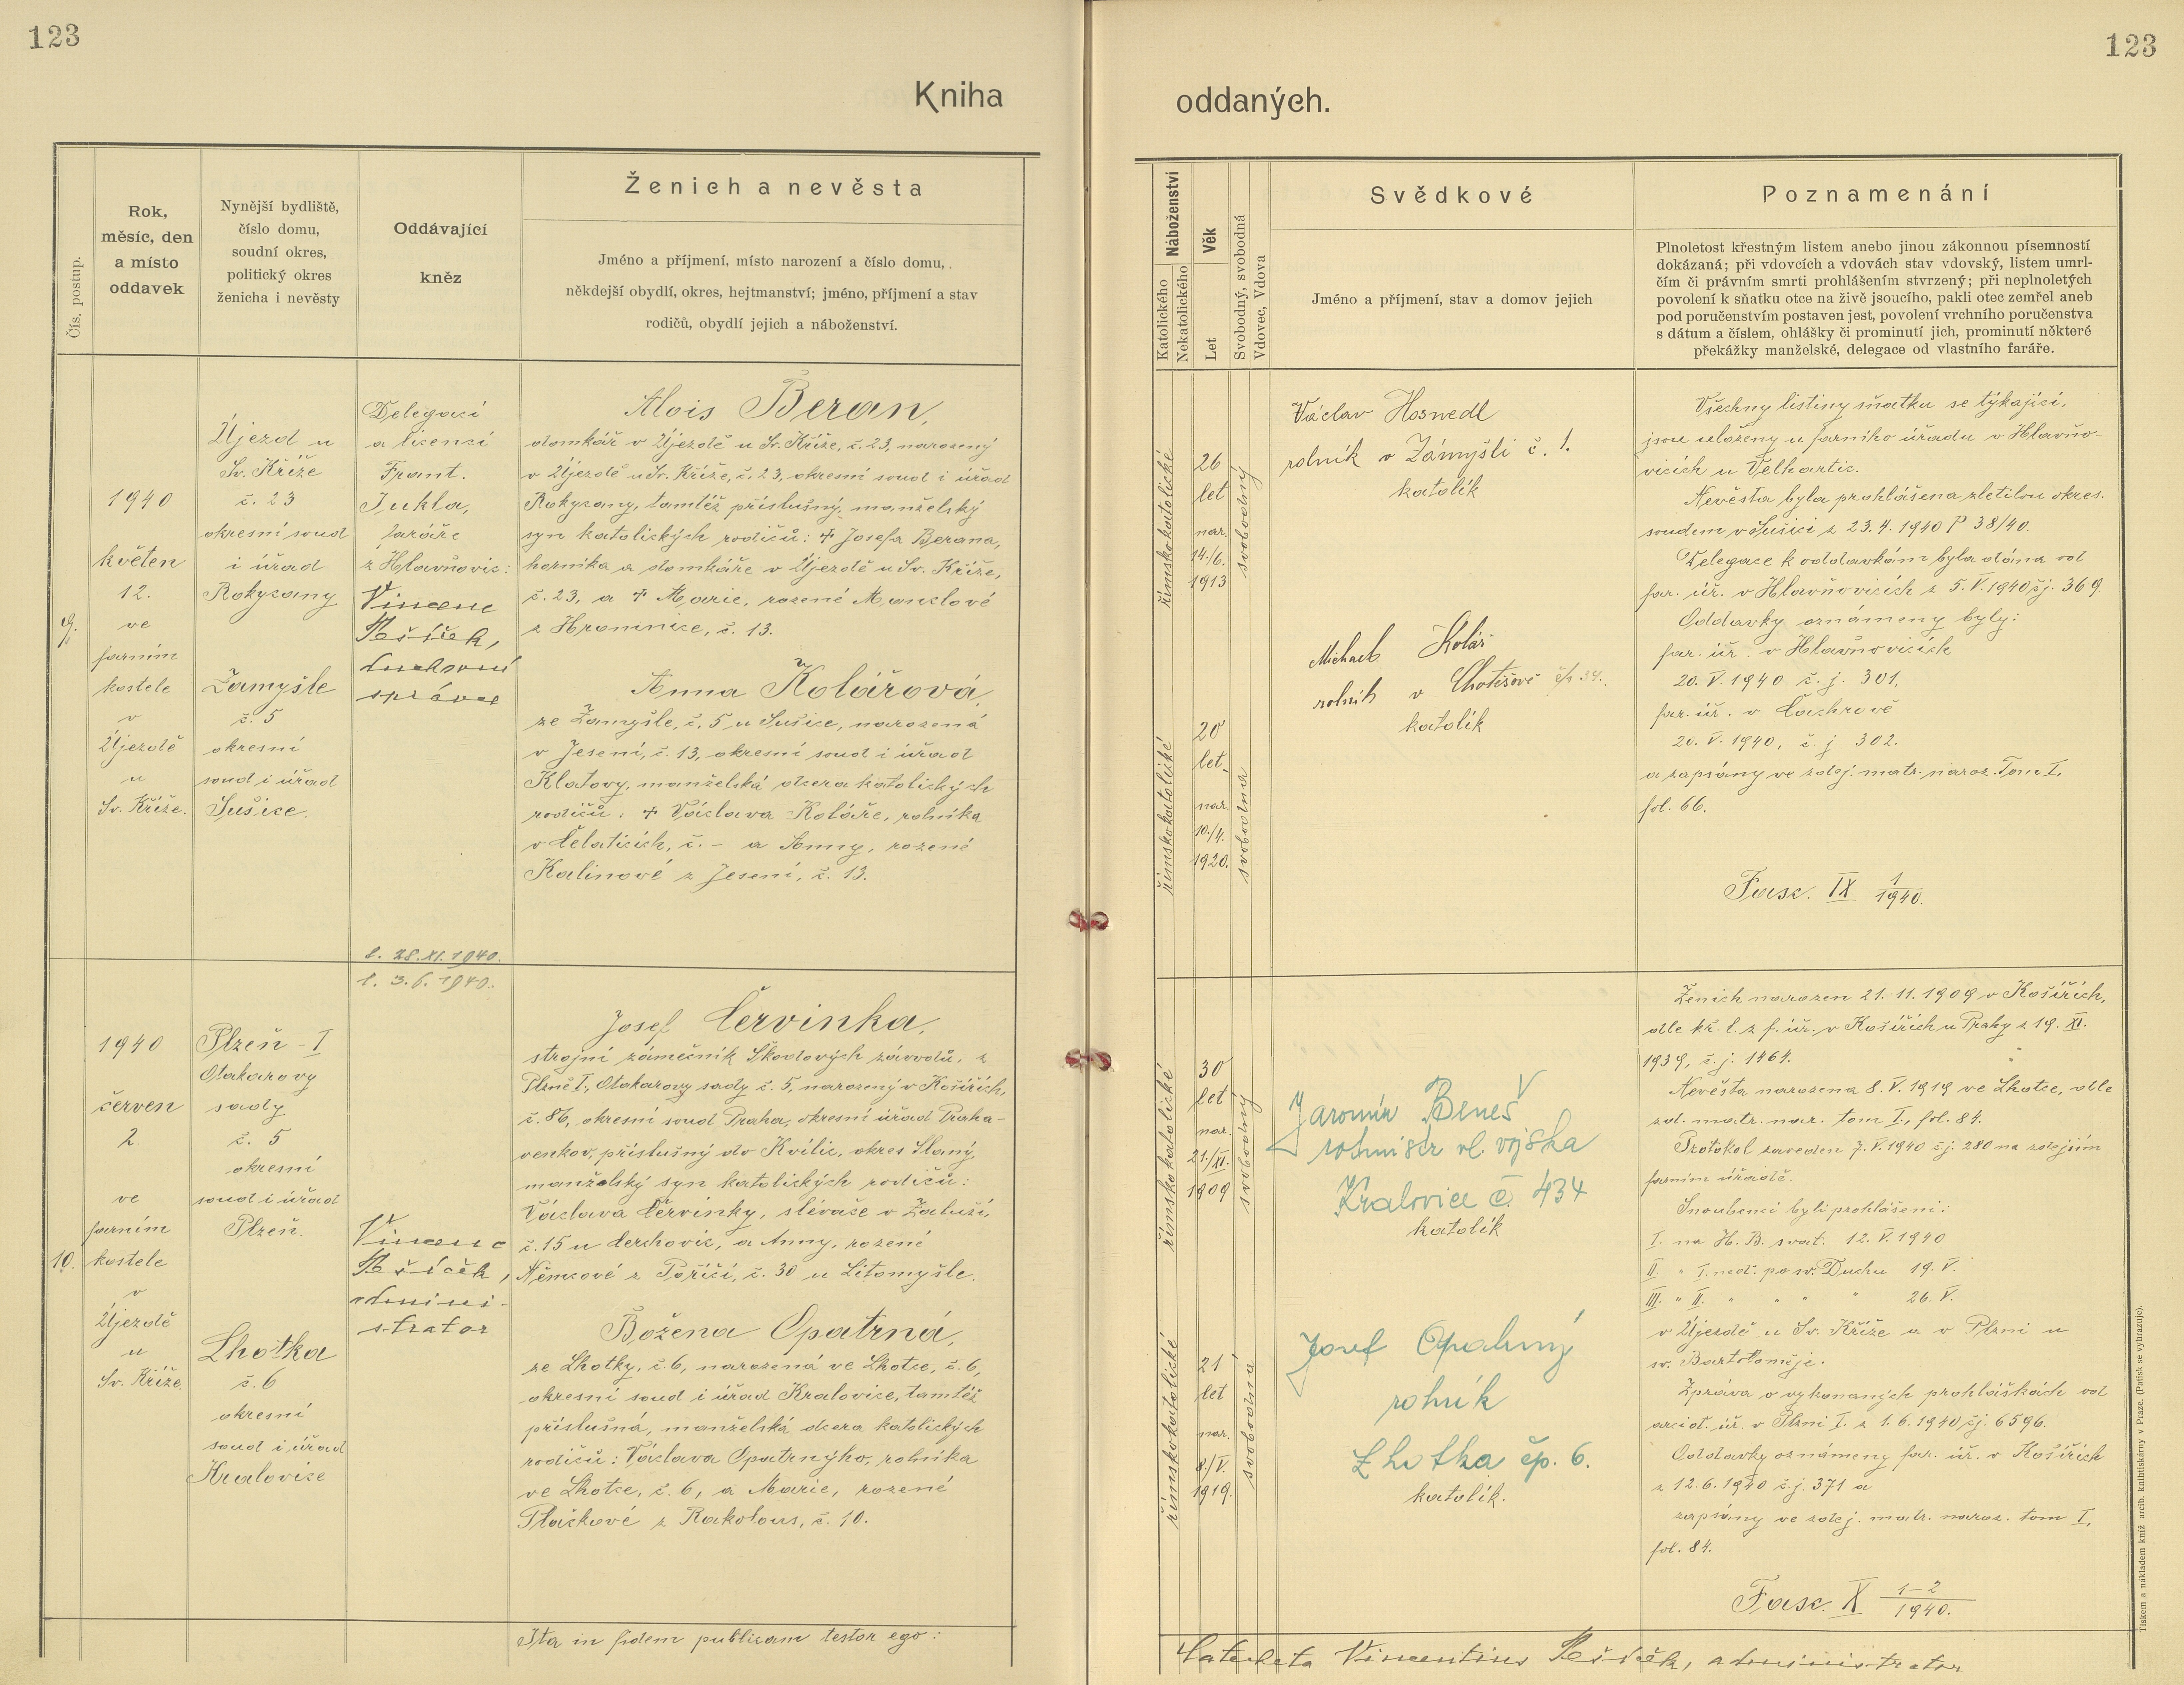 123
Kniha
Čís. postup.
Rok,
měsíc, den
a místo
oddavek
Nynější bydliště,
číslo domu,
soudní okres,
politický okres
ženicha i nevěsty
Oddávající
kněz
Ženich a nevěsta
Jméno a příjmení, místo narození a číslo domu,
někdejší obydlí, okres, hejtmanství; jméno, příjmení a stav
rodičů, obydlí jejich a náboženství.
9.
1940
květen
12.
ve
farním
kostele
v
Újezdě
u
Sv. Kříže.
Újezd u
Sv. Kříže
č. 23
okresní soud
i úřad
Rokycany
Žamyšle
č. 5
okresní
soud i úřad
Sušice.
Delegací
a licencí
Frant.
Jukla,
faráře
z Hlavňovic:
Vincenc
Řešíček,
duchovní
správce
l. 28. XI. 1940.
Alois Beran,
domkář v Újezdě u Sv. Kříže, č. 23, narozený
v Újezdě u Sv. Kříže, č. 23, okresní soud i úřad
Rokycany, tamtéž příslušný, manželský
syn katolických rodičů: † Josefa Berana,
horníka a domkáře v Újezdě u Sv. Kříže,
č. 23, a † Marie, rozené Manclové
z Hromnice, č. 13.
Anna Kolářová,
ze Žamyšle, č. 5 u Sušice, narozená
v Jesení, č. 13, okresní soud i úřad
Klatovy, manželská dcera katolických
rodičů: † Václava Koláře, rolníka
v Čelaticích, č. – a Anny, rozené
Kalinové z Jesení, č. 13.
10.
1940
červen
2.
ve
farním
kostele
v
Újezdě
u
Sv. Kříže.
Plzeň - I
Otakarovy
sady
č. 5
okresní
soud i úřad
Plzeň.
Lhotka
č. 6
okresní
soud i úřad
Kralovice
l. 3. 6. 1940.
Vincenc
Řešíček,
admini-
strator
Josef Červinka,
strojní zámečník Škodových závodů, z
Plzně I., Otakarovy sady č. 5, narozený v Košířích,
č. 86, okresní soud Praha, okresní úřad Praha-
venkov, příslušný do Kvílic, okres Slaný,
manželský syn katolických rodičů:
Václava Červinky, slévače v Záluží,
č. 15 u Čerchovic, a Anny, rozené
Němcové z Poříčí, č. 30 u Litomyšle.
Božena Opatrná,
ze Lhotky, č. 6, narozená ve Lhotce, č. 6,
okresní soud i úřad Kralovice, tamtéž
příslušná, manželská dcera katolických
rodičů: Václava Opatrnýho, rolníka
ve Lhotce, č. 6, a Marie, rozené
Plačkové z Rakolous, č. 10.
Ita in fidem publicam testor ego:
123
oddaných.
Náboženství
Katolického
Nekatolického
Věk
Let
Svobodný, svobodná
Vdovec, Vdova
Svědkové
Jméno a příjmení, stav a domov jejich
Poznamenání
Plnoletost křestným listem anebo jinou zákonnou písemností
dokázaná; při vdovcích a vdovách stav vdovský, listem umrl-
čím či právním smrti prohlášením stvrzený; při neplnoletých
povolení k sňatku otce na živě jsoucího, pakli otec zemřel aneb
pod poručenstvím postaven jest, povolení vrchního poručenstva
s dátum a číslem, ohlášky či prominutí jich, prominutí některé
překážky manželské, delegace od vlastního faráře.
římskokatolické
26
let
nar.
14./6.
1913
svobodný
římskokatolické
20
let,
nar.
10./4.
1920.
svobodná
Václav Hosnedl
rolník v Zámyšli č. 1.
katolík
Michael Kolář
rolník v Chotěšově čp. 34.
katolík
Všechny listiny sňatku se týkající,
jsou uloženy u farního úřadu v Hlavňo-
vicích u Velhartic.
Nevěsta byla prohlášena zletilou okres.
soudem v Sušici z 23. 4. 1940 P 38/40.
Delegace k oddavkám byla dána od
far. úř. v Hlavňovicích z 5. V. 1940 čj. 369.
Oddavky oznámeny byly:
far. úř. v Hlavňovicích
20. V. 1940 č. j. 301,
far. úř. v Čachrově
20. V. 1940, č. j. 302.
a zapsány ve zdej. matr. naroz. Tom I,
fol. 66.
Fasc. IX 1/1940.
římskokatolické
30
let
nar.
21./XI.
1909
svobodný
římskokatolické
21
let
nar.
8./V.
1919.
svobodná
Jaromír Beneš
rotmistr vl. vojska
Kralovice č. 434
katolík
Josef Opatrný
rolník
Lhotka čp. 6.
katolík.
Ženich narozen 21. 11. 1909 v Košířích,
dle kř. l. z f. úř. v Košířích u Prahy z 19. XI.
1939, č. j. 1464.
Nevěsta narozena 8. V. 1919 ve Lhotce, dle
zd. matr. nar. tom I., fol. 84.
Protokol saveden 7. V. 1940 čj. 280 na zdejším
farním úřadě.
Snoubenci byli prohlášeni:
I. na H. B. svat. 12. V. 1940
II. " I. ned. po sv. Duchu 19. V.
III. " II. " " " " 26. V.
v Újezdě u Sv. Kříže a v Plzni u
sv. Bartoloměje.
Zpráva o vykonaných prohláškách od
arciď. úř. v Plzni I. z 1. 6. 1940 čj. 6596.
Oddavky oznámeny far. úř. v Košířích
z 12. 6. 1940 č. j. 371 a
zapsány ve zdej. matr. naroz. tom I,
fol. 84.
Fasc. X 1-2/1940.
Catecheta Vincentius Řešíček, administrator
Tiskem a nákladem kníž. arcib. knihtiskárny v Praze. (Patisk se vyhrazuje).